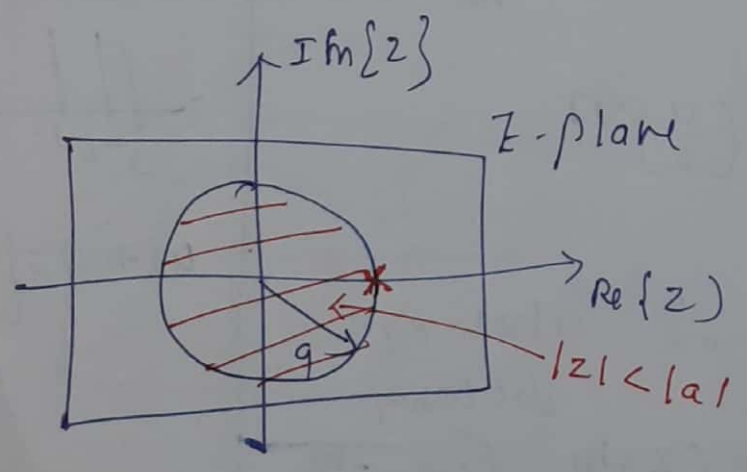 Im{z}
Z-plane
Re{z)
a
|z|<|a|